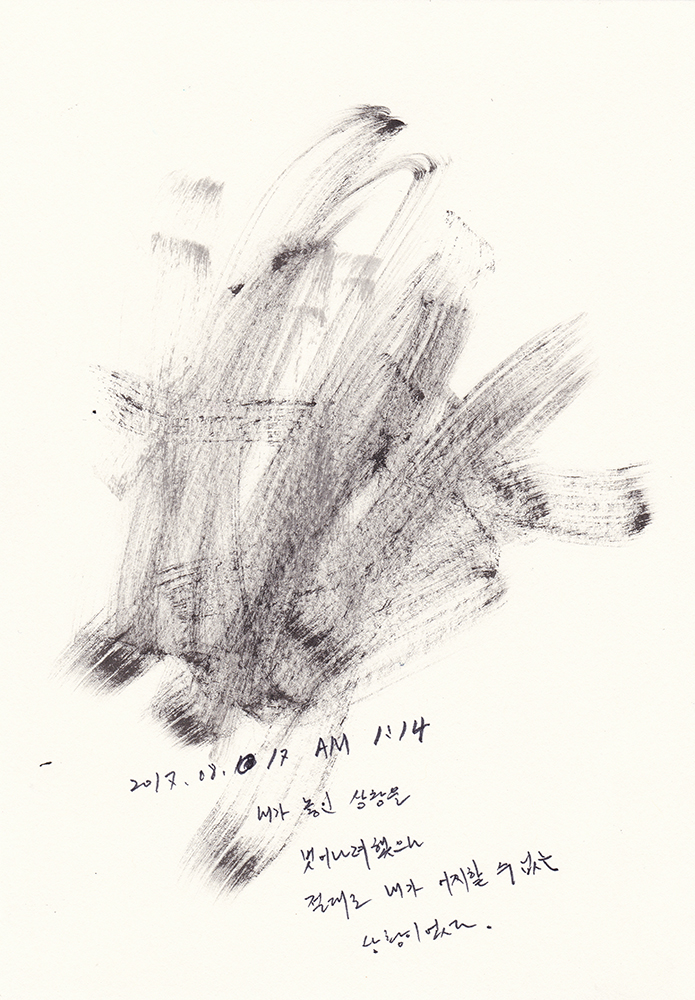 2017. 08. 17 AM 1:14
내가 놓인 상황을
벗어나려했으나
절대로 내가 어찌할 수 없는
상황이었다.